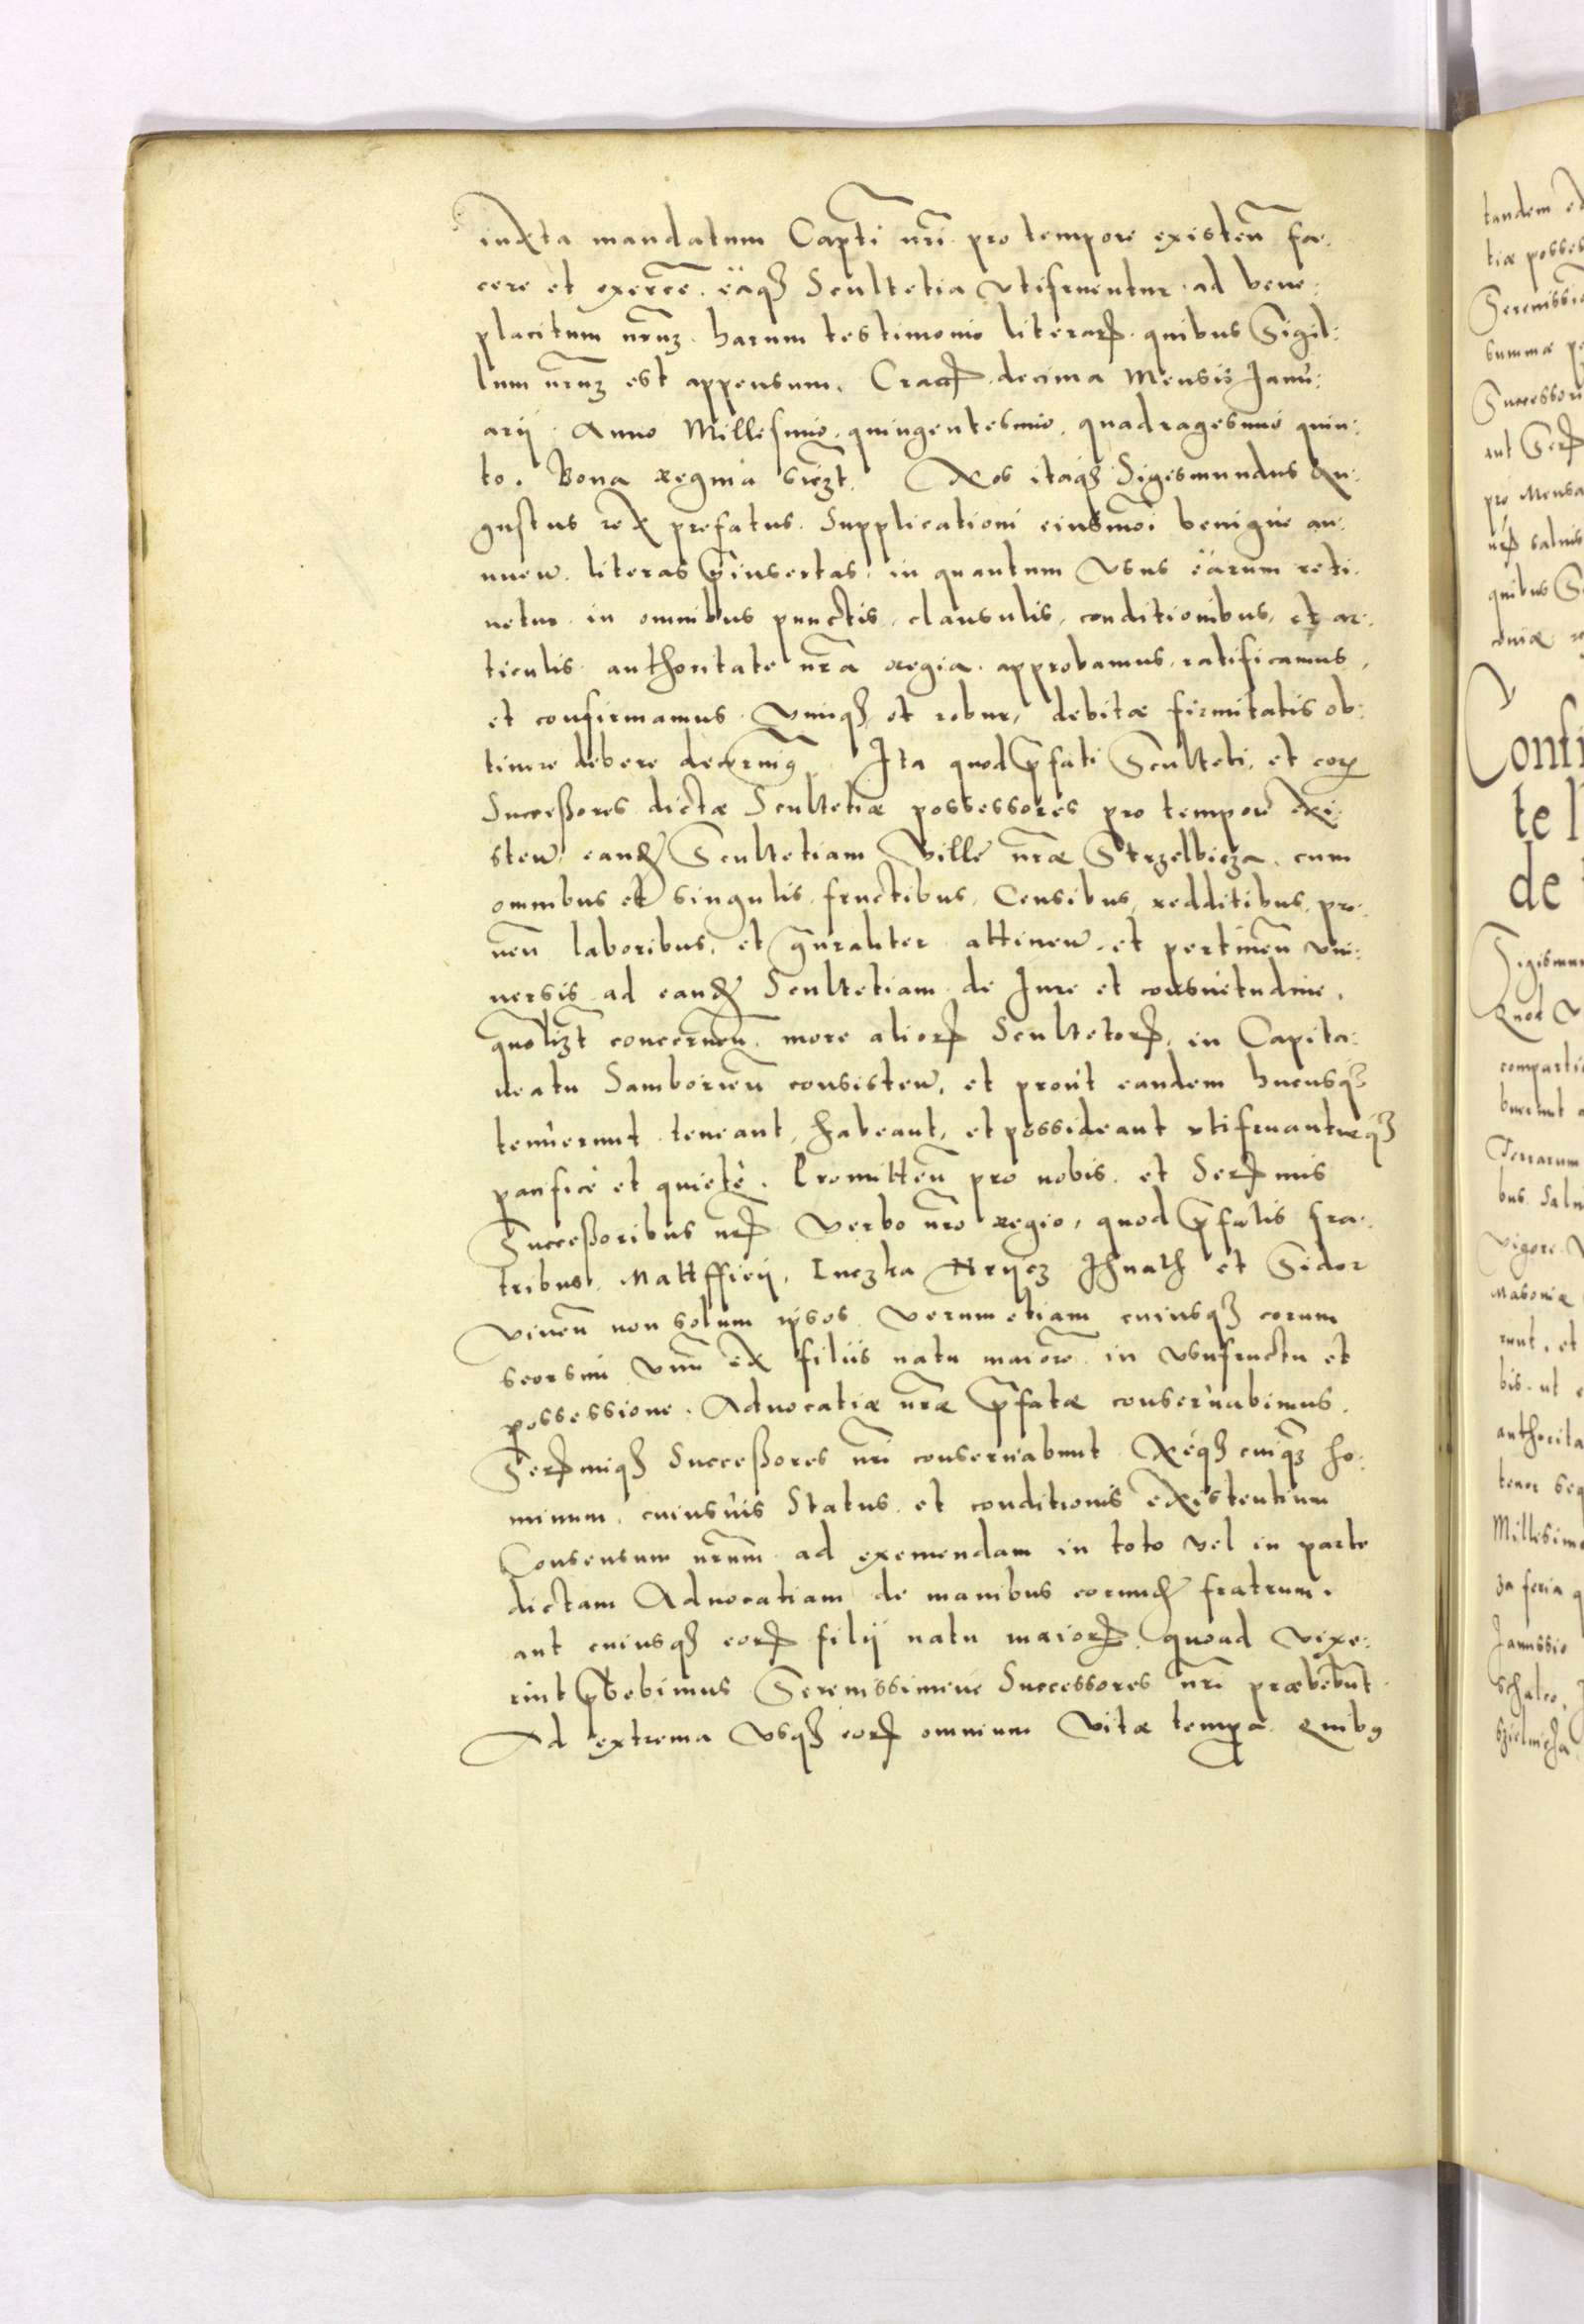 iuxta mandatum Capti nri pro tempore existen fa:
cere et exerce. eaq3 Scultetia utifruentur ad bene:
placitum nru3. harum testimonio literar. quibus Sigil:
lum nru3 est appensum. Crac. decima Mensis Janu:
arij Anno Millesimo. quingentesimo. quadragesimo quin:
to. Bona regina sczt. Nos itaq3 Sigismundus Au:
gustus rex prefatus. Supplicationi eiusmoi benigne an:
nuen. literas pinsertas. in quantum usus earum reti:
netur in omnibus punctis, clausulis, conditionibus, et ar:
ticulis authoritate nra regia approbamus, ratificamus,
et confirmamus. vimq3 et robur, debitæ firmitatis ob:
tinere debere decernim9. Ita quod pfati Sculteti, et eor
Successores dictæ Scultetiæ possessores pro tempore exi:
sten. eand Scultetiam Villæ nræ Strzelbicza. cum
omnibus et singulis, fructibus, Censibus, redditibus, pro:
uen laboribus, et gnraliter attinen. et pertinen uni:
uersis ad eand Scultetiam de Jure et consuetudine.
qnolizt concernen. more alior Scultetor. in Capita:
neatu Samborien consisten. et prout eandem hucusq3
tenuerunt teneant, habeant, et possideant utifruanturq3
pacifice et quiete. Promitten pro nobis. et Ser mis
Successoribus nr Verbo nro regio, quod pfatis fra:
tribus. Mattffieij, Luczka Hrycz Ihnath et Sidor
viuen non solum ipsos verum etiam cuiusq3 eorum
seorsim unu ex filiis natu maiore in usufructu et
possessione. Aduocatiæ nræ pfatæ conseruabimus.
Ser miq3 Successores nri conseruabunt Neq3 cuiq3 ho:
minum, cuiusuis Status et conditionis existentium
Consensum nrum ad exemendam in toto vel in parte
dictam Aduocatiam de manibus eorund fratrum.
aut cuiusq3 eor filij natu maior. quoad vixe:
rint pbebimus Serenissimiue Successores nri præbebunt.
Ad extrema usq3 eor omnium Vitæ tempa. Quib9